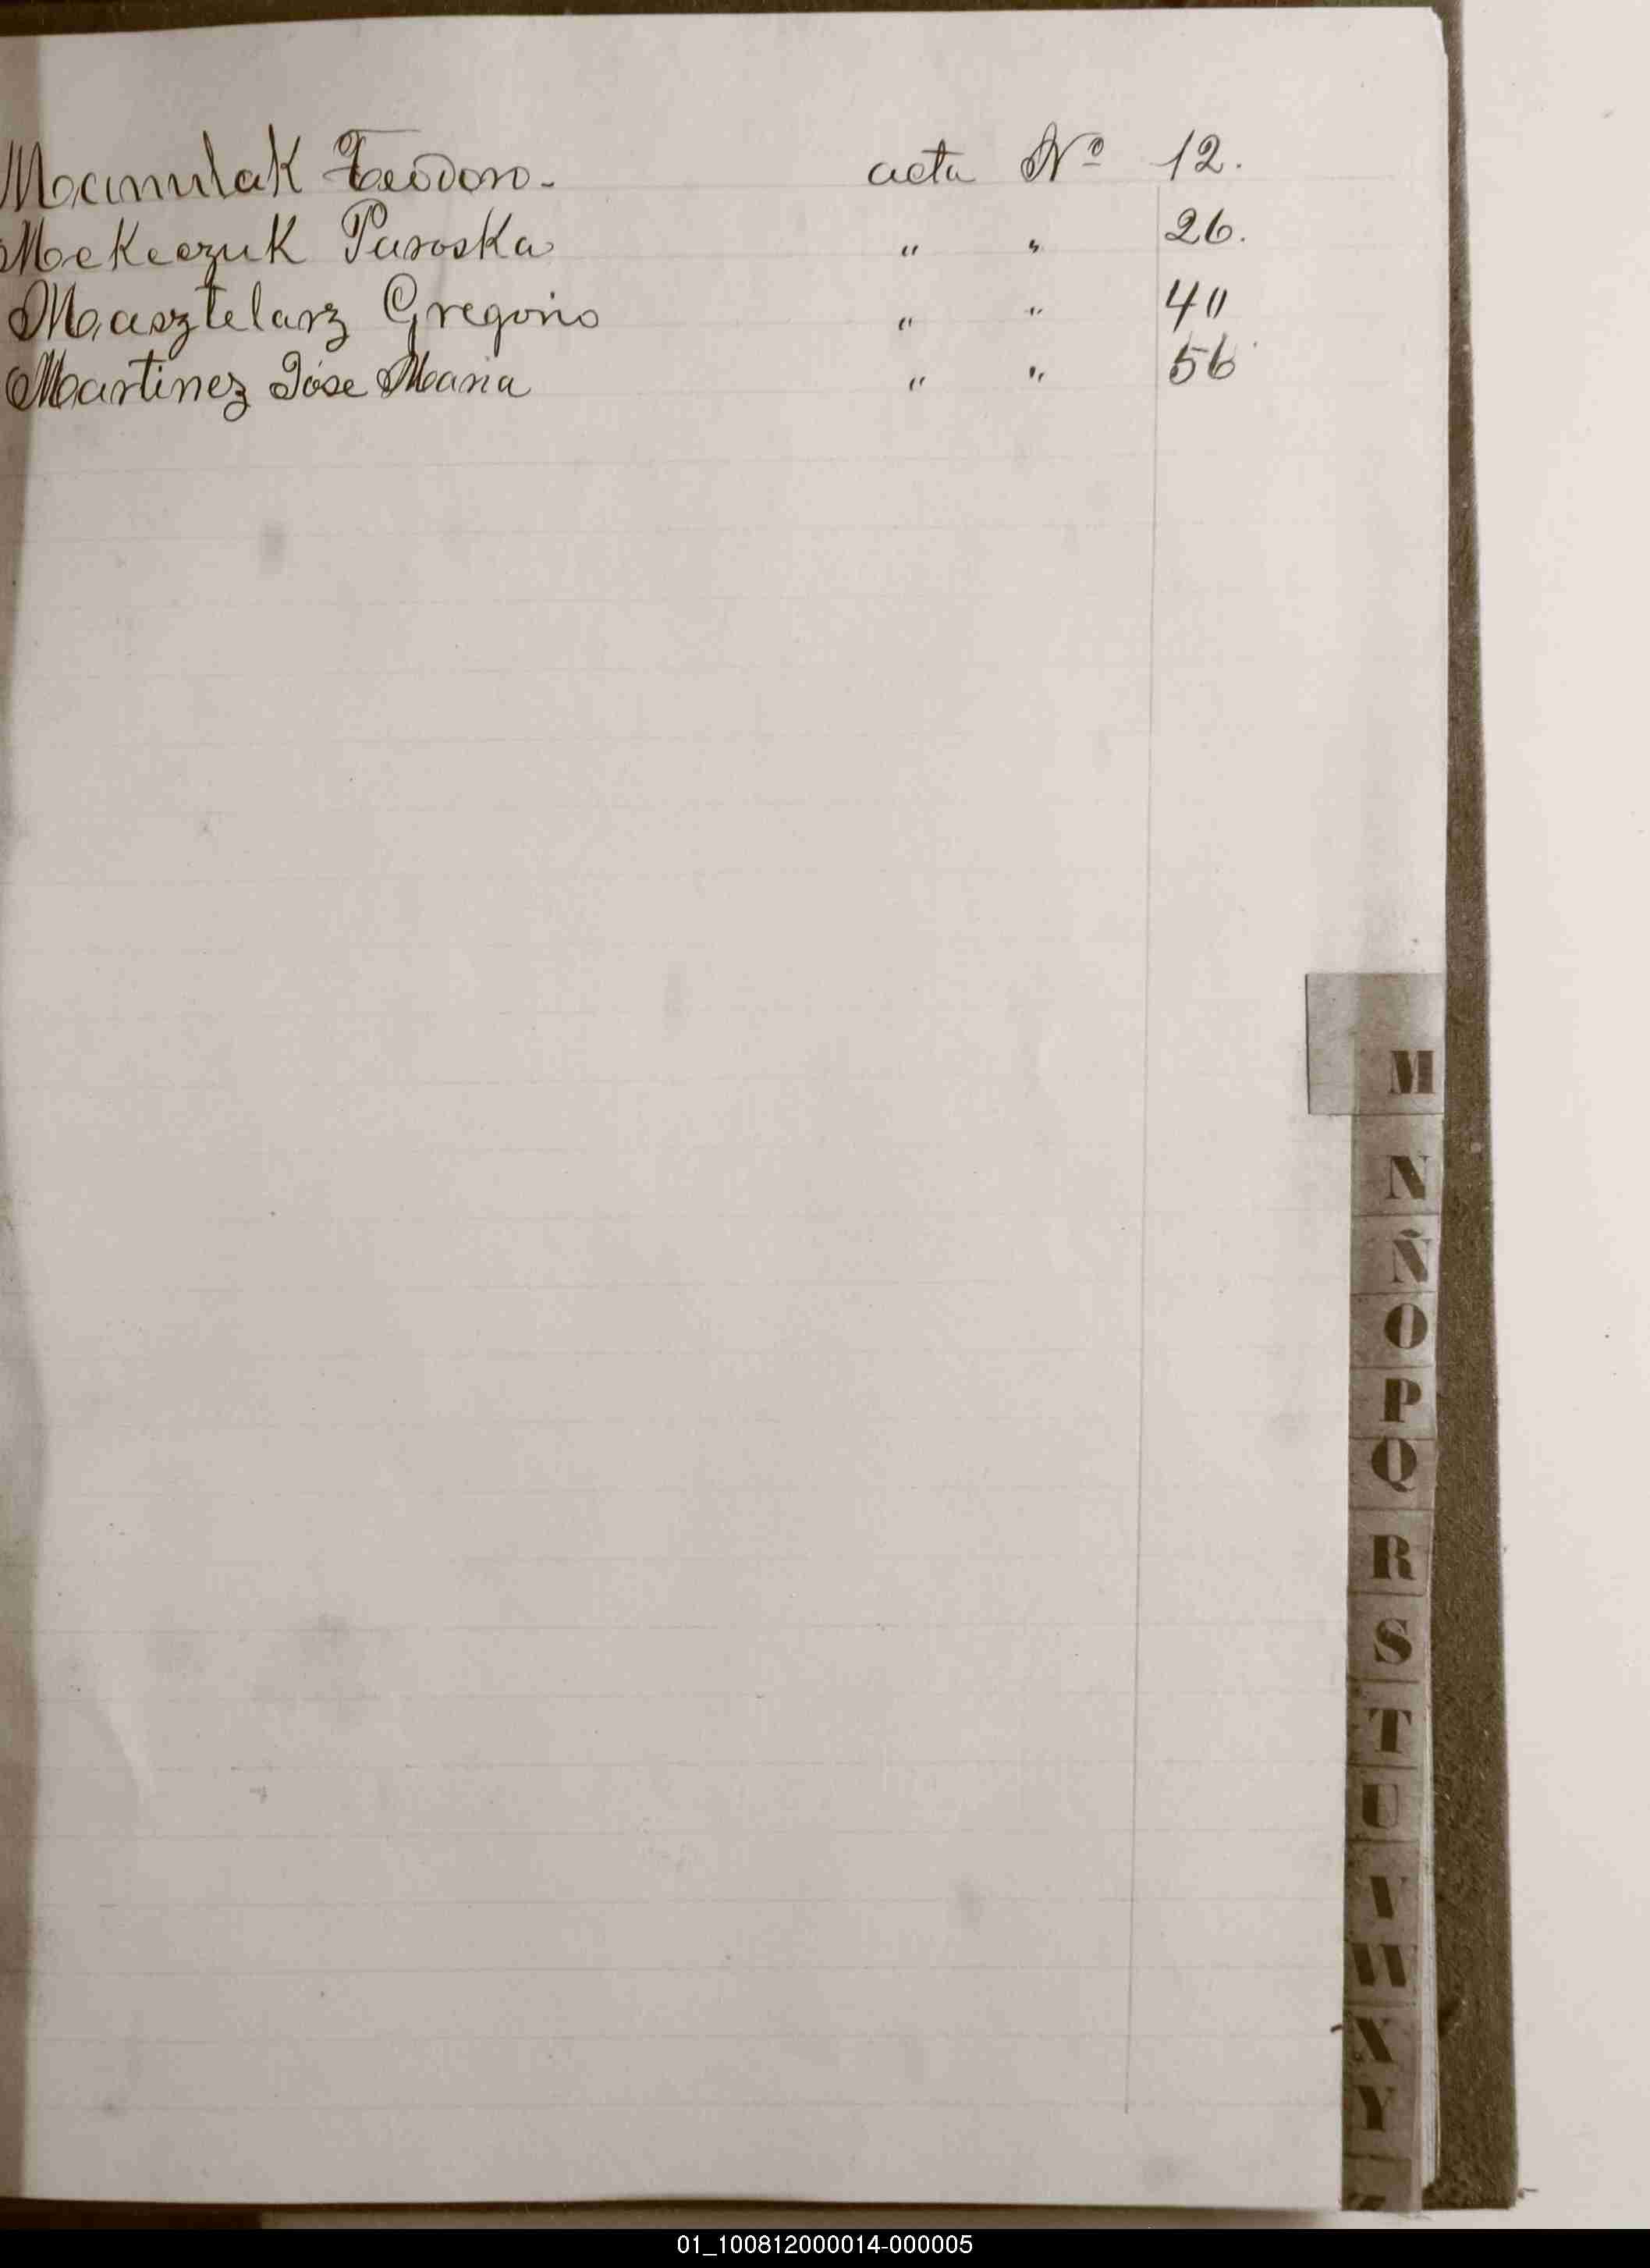 Macimulak Teodoro. acta Nº 12.
Mekeczuk Paroska " " 26.
Masztelarz Gregorio " " 40
Martinez Jóse Maria " " 56
M
N
Ñ
O
P
Q
R
S
T
U
V
W
X
Y
Z
01_100812000014-000005